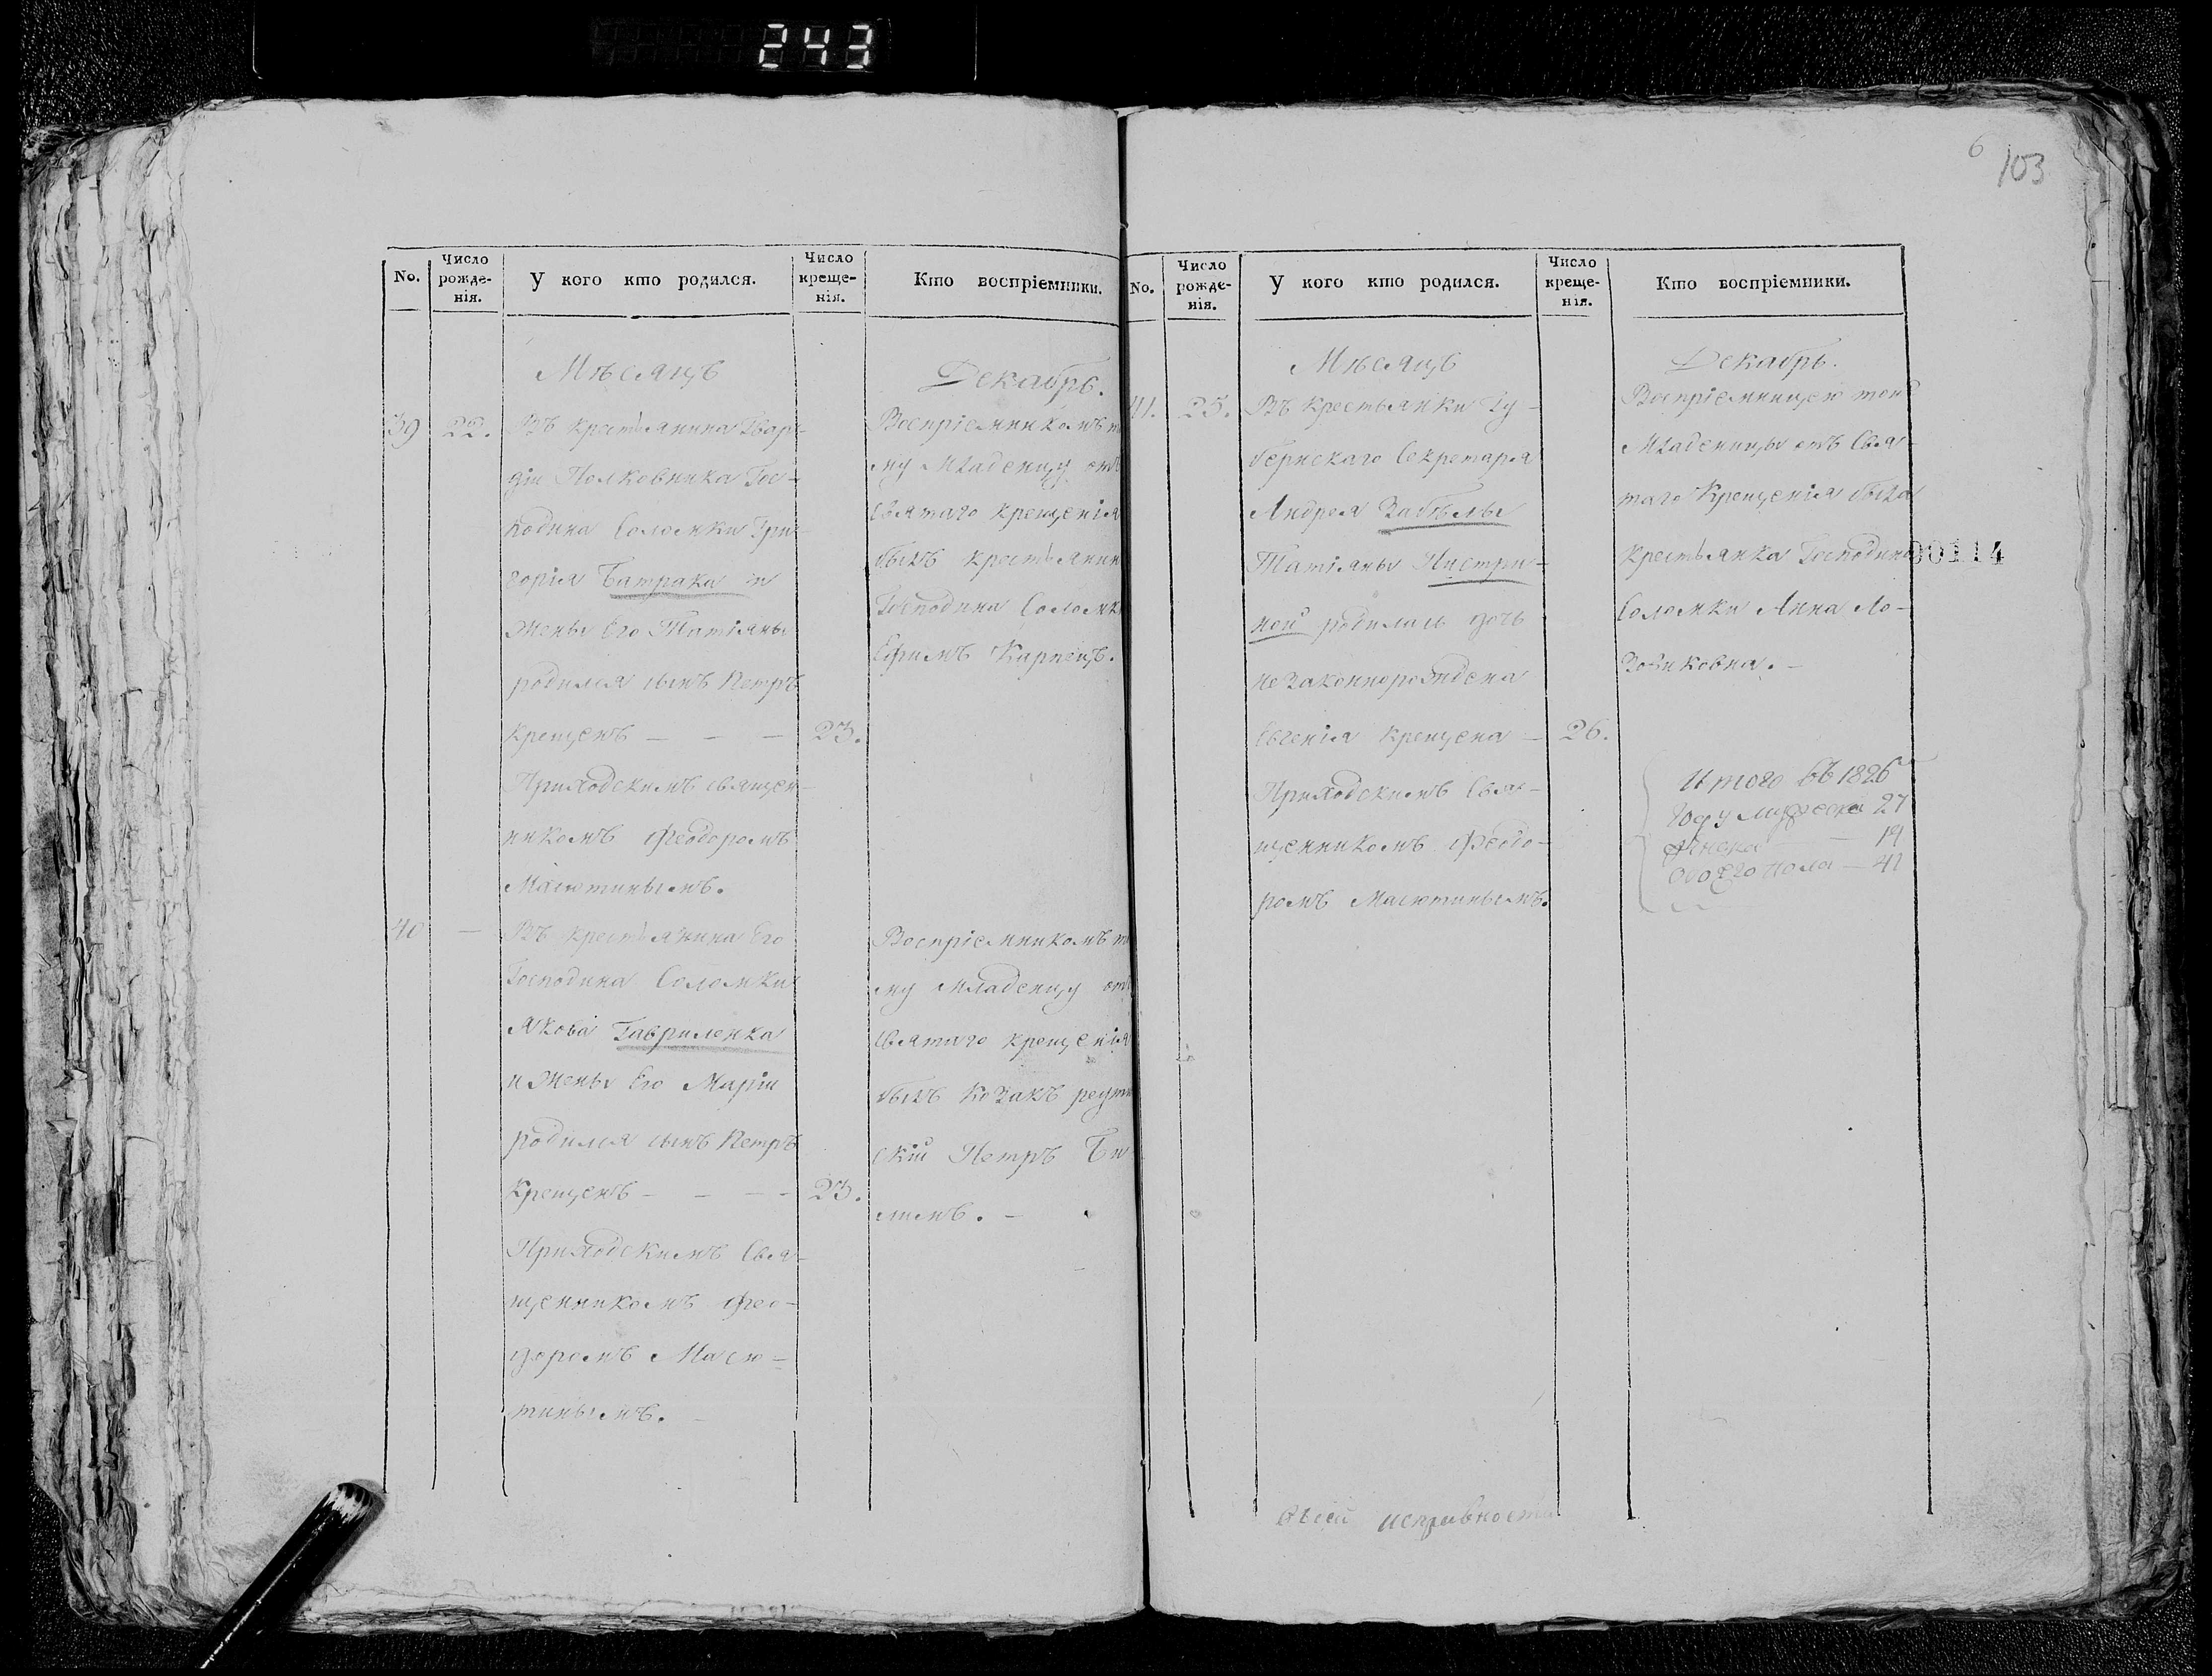 243
6
103
No.
Число рожде-нія.
У кого кто родился.
Число креще-нія.
Кто воспріемники.
Мѣсяцъ
Декабрь.
39
22.
Въ крестьянина Гвар-
діи Полковника Гос-
подина Соломки Гри-
горія Батрака и
жены Его Татіяны
родился сынъ Петръ
крещенъ — — —
23.
Приходскимъ священ-
никомъ Феодоромъ
Масютинымъ.
Воспріемникомъ
му Младенцу отъ
Святаго крещенія
былъ крестьянин
Господина Соломк
Ефимъ Карпецъ.
40
—
Въ крестьянина Его
Господина Соломки
Якова Гавриленка
и жены Его Маріи
родился сынъ Петръ
Крещенъ — — — —
23.
Приходскимъ Свя-
щенникомъ Фео-
доромъ Масю-
тинымъ.
Воспріемникомъ
му младенцу отъ
Святаго крещенія
былъ Козакъ реути
скій Петръ Би
лимъ. —
No.
Число рожде-нія.
У кого кто родился.
Число креще-нія.
Кто воспріемники.
Мѣсяцъ
Декабрь.
41.
25.
Въ крестьянки Гу-
бернскаго Секретаря
Андрея Забѣлы
Татіяны
ной родилась дочь
незаконнорождена
Евгенія крещена —
26.
Приходскимъ Свя-
щенникомъ Феодо-
ромъ Масютинымъ.
Воспріемницею той
Младеницы отъ Свя-
таго Крещенія была
крестьянка Господина
Соломки Анна Ло-
00114
Итого въ 1826
году мужеска 27
женска — 14
обоего пола — 41
исправности